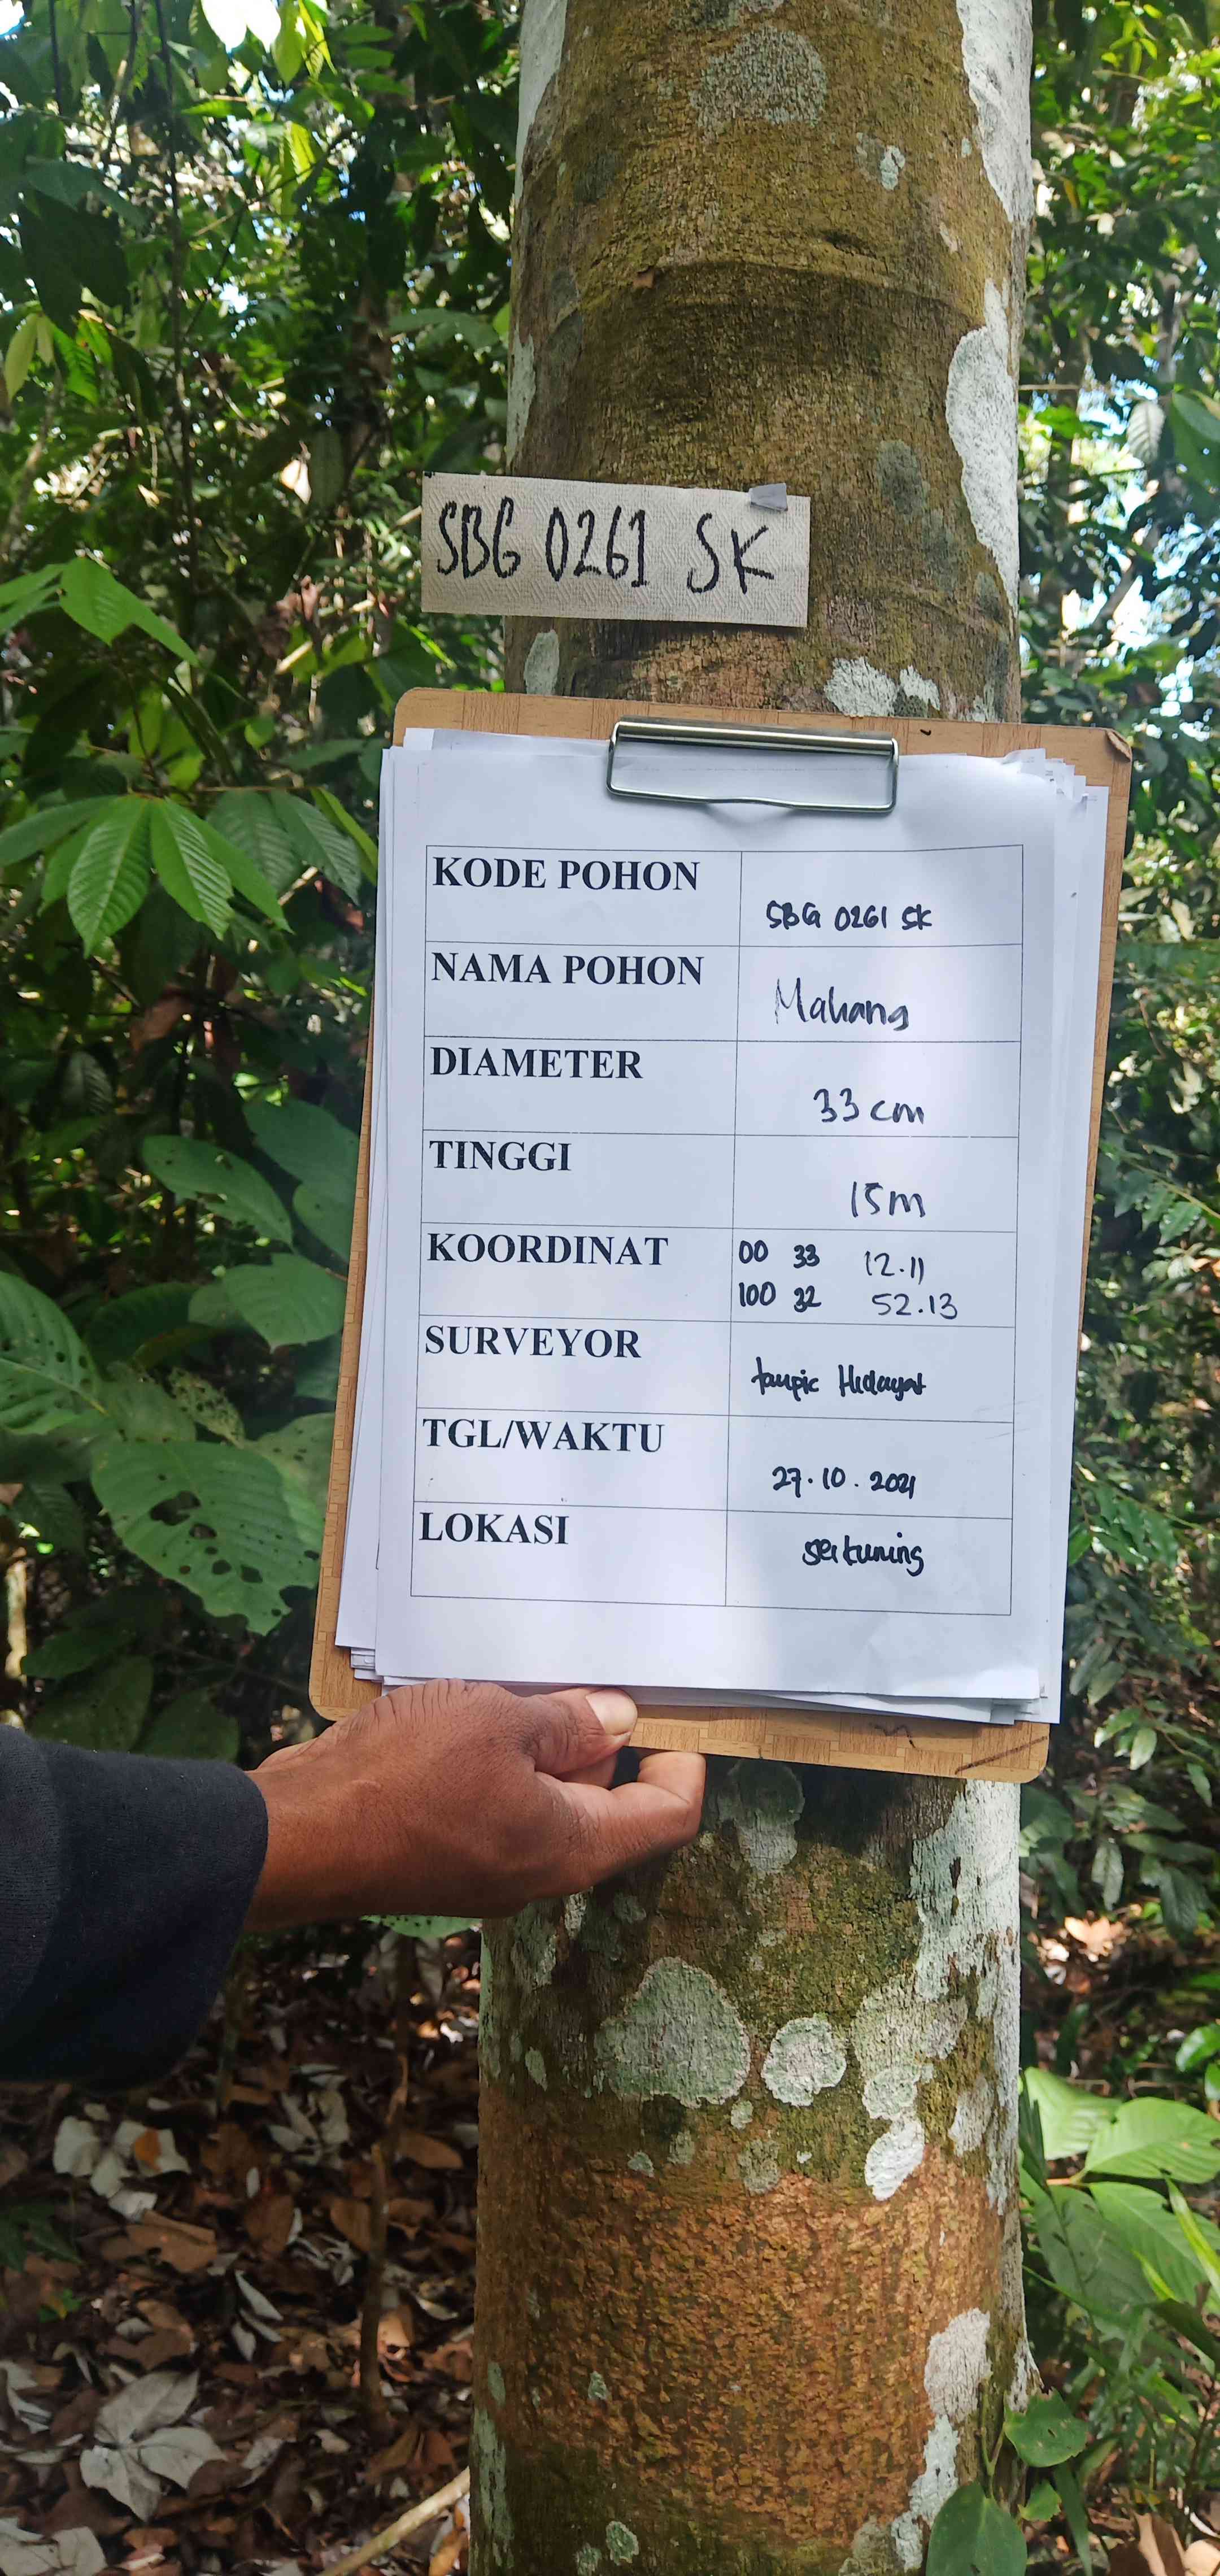 SBG 0261 SK
KODE POHON SBG 0261 SK
NAMA POHON Mahang
DIAMETER 33 cm
TINGGI 15m
KOORDINAT 00 33 12.11
100 32 52.13
SURVEYOR taupic Hidayat
TGL/WAKTU 27.10.2021
LOKASI sei kuning